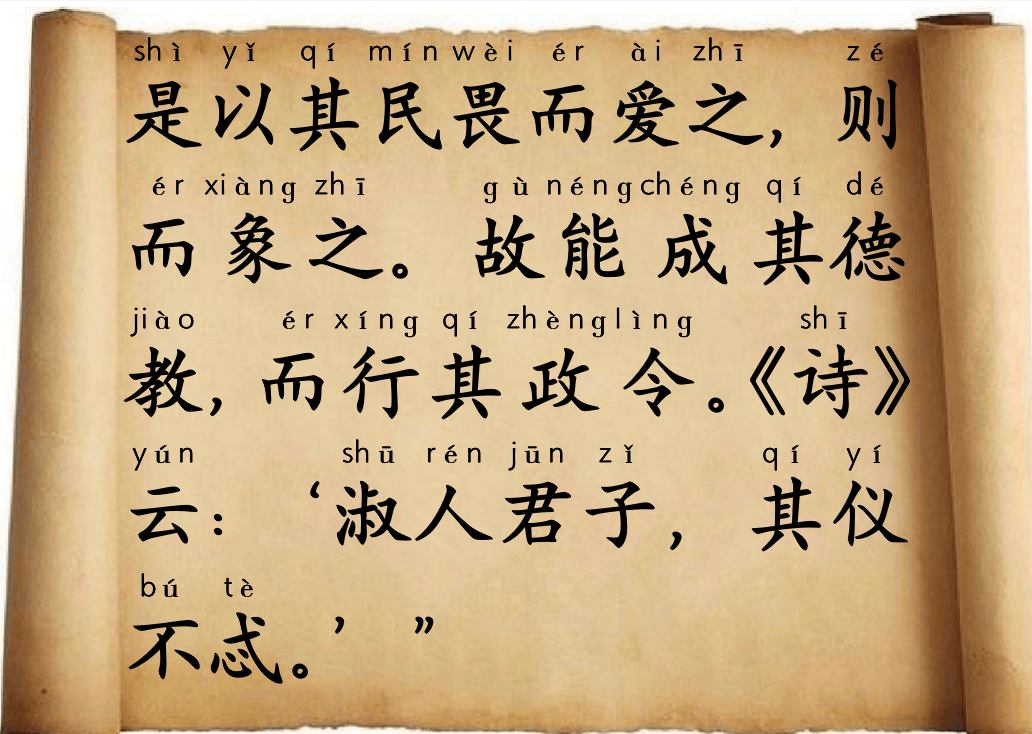 shì yǐ qí mín wèi ér ài zhī zé
是以其民畏而爱之，则
ér xiàng zhī gù néng chéng qí dé
而象之。故能成其德
jiào ér xíng qí zhèng lìng shī
教，而行其政令。《诗》
yún shū rén jūn zǐ qí yí
云：‘淑人君子，其仪
bú tè
不忒。’”